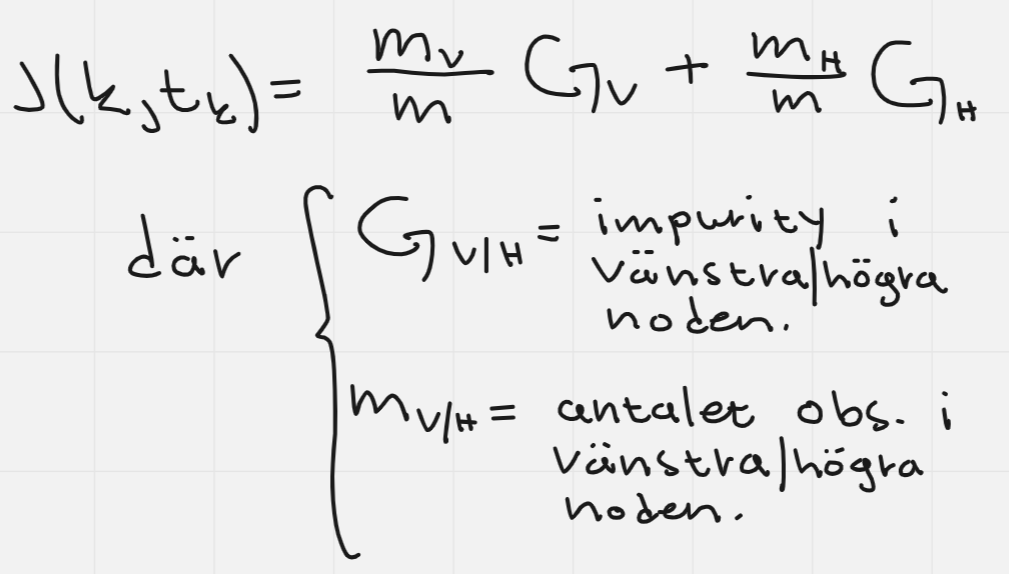 J(k, t_k) = m_V/m G_V + m_H/m G_H
där { G_V/H = impurity i
vänstra/högra
noden.
m_V/H = antalet obs. i
vänstra/högra
noden.